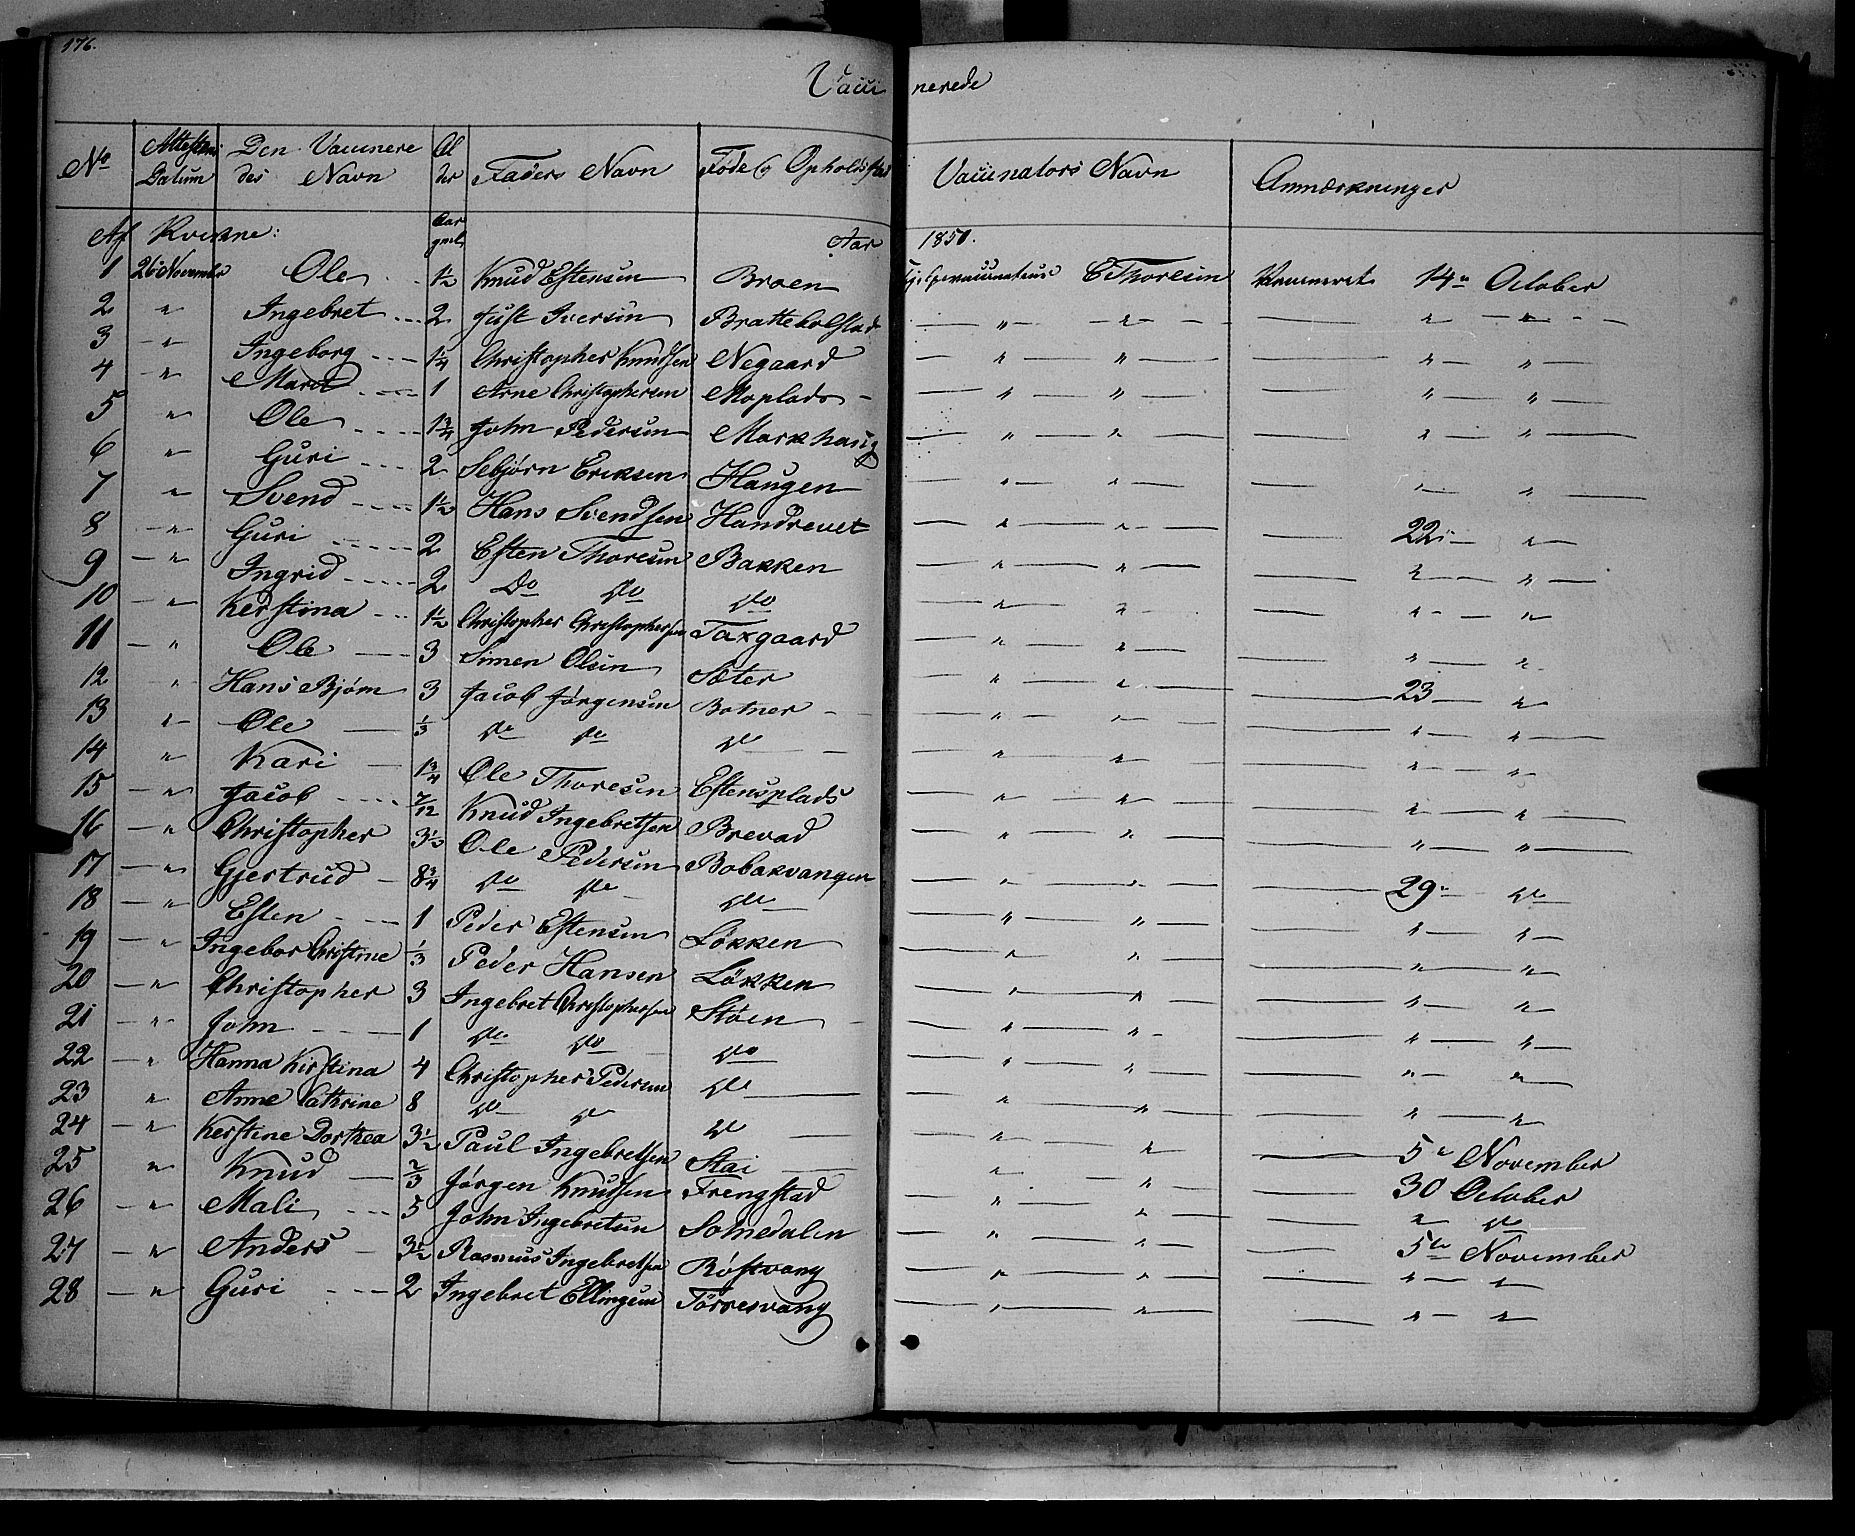 176.
Vacci nerede
No Attestens Datum Den Vaccinere des Navn Al der Faders Navn Føde og Opholdssted Vaccinators Navn Anmærkninger
Af Kvikne: Aar gml. Aar 1850.
1 26 November Ole 1½ Knud Estensen Broen C Thoresen Vaccineret 14de October
2 " Ingebret 2 Just Iversen Brattebolstad " " " "
3 " Ingeborg 1¼ Christopher Knudsen Negaard " " " "
4 " Maret 1 Arne Christophersen Moplads " " " "
5 " Ole 1¾ John Pedersen Morkhaug " " " "
6 " Guri 2 Sebjørn Eriksen Haugen " " " "
7 " Svend 1½ Hans Svendsen Handrevet " " 22 "
8 " Guri 2 Esten Thoresen Bakken " " " "
9 " Ingrid 2 Do Do Do " " " "
10 " Kerstina 1½ Christopher Christophersen Taxgaard " " " "
11 " Ole 3 Simen Olsen Sæter " " 23 "
12 " Hans Bjørn 3 Jacob Jørgensen Botner " " " "
13 " Ole ⅓ Do Do Do " " " "
14 " Kari 1¾ Ole Thoresen Estensplads " " " "
15 " Jacob 7/12 Knud Ingebretsen Brevad " " " "
16 " Christopher 3½ Ole Pedersen Bobakvangen " " 29 Do
17 " Gjertrud 8¾ Do Do Do " " " "
18 " Esten 1 Peder Estensen Løkken " " " "
19 " Ingebor Christine ⅓ Peder Hansen Løkken " " " "
20 " Christopher 3 Ingebret Christophersen Støen " " " "
21 " John 1 Do Do Do " " " "
22 " Hanna Kirstina 4 Christopher Pedersen Do " " " "
23 " Anne Cathrine 8 Do Do Do " " 5te November
24 " Kerstine Dorthea 3½ Paul Ingebretsen Stai " " 30 October
25 " Knud ⅔ Jørgen Knudsen Frengstad " " " Do
26 " Mali 5 John Ingebretsen Somedalen " " 5te November
27 " Anders 3½ Rasmus Ingebretsen Røstvang " " " "
28 " Guri 2 Ingebret Ellingsen Tørresvang " " " "